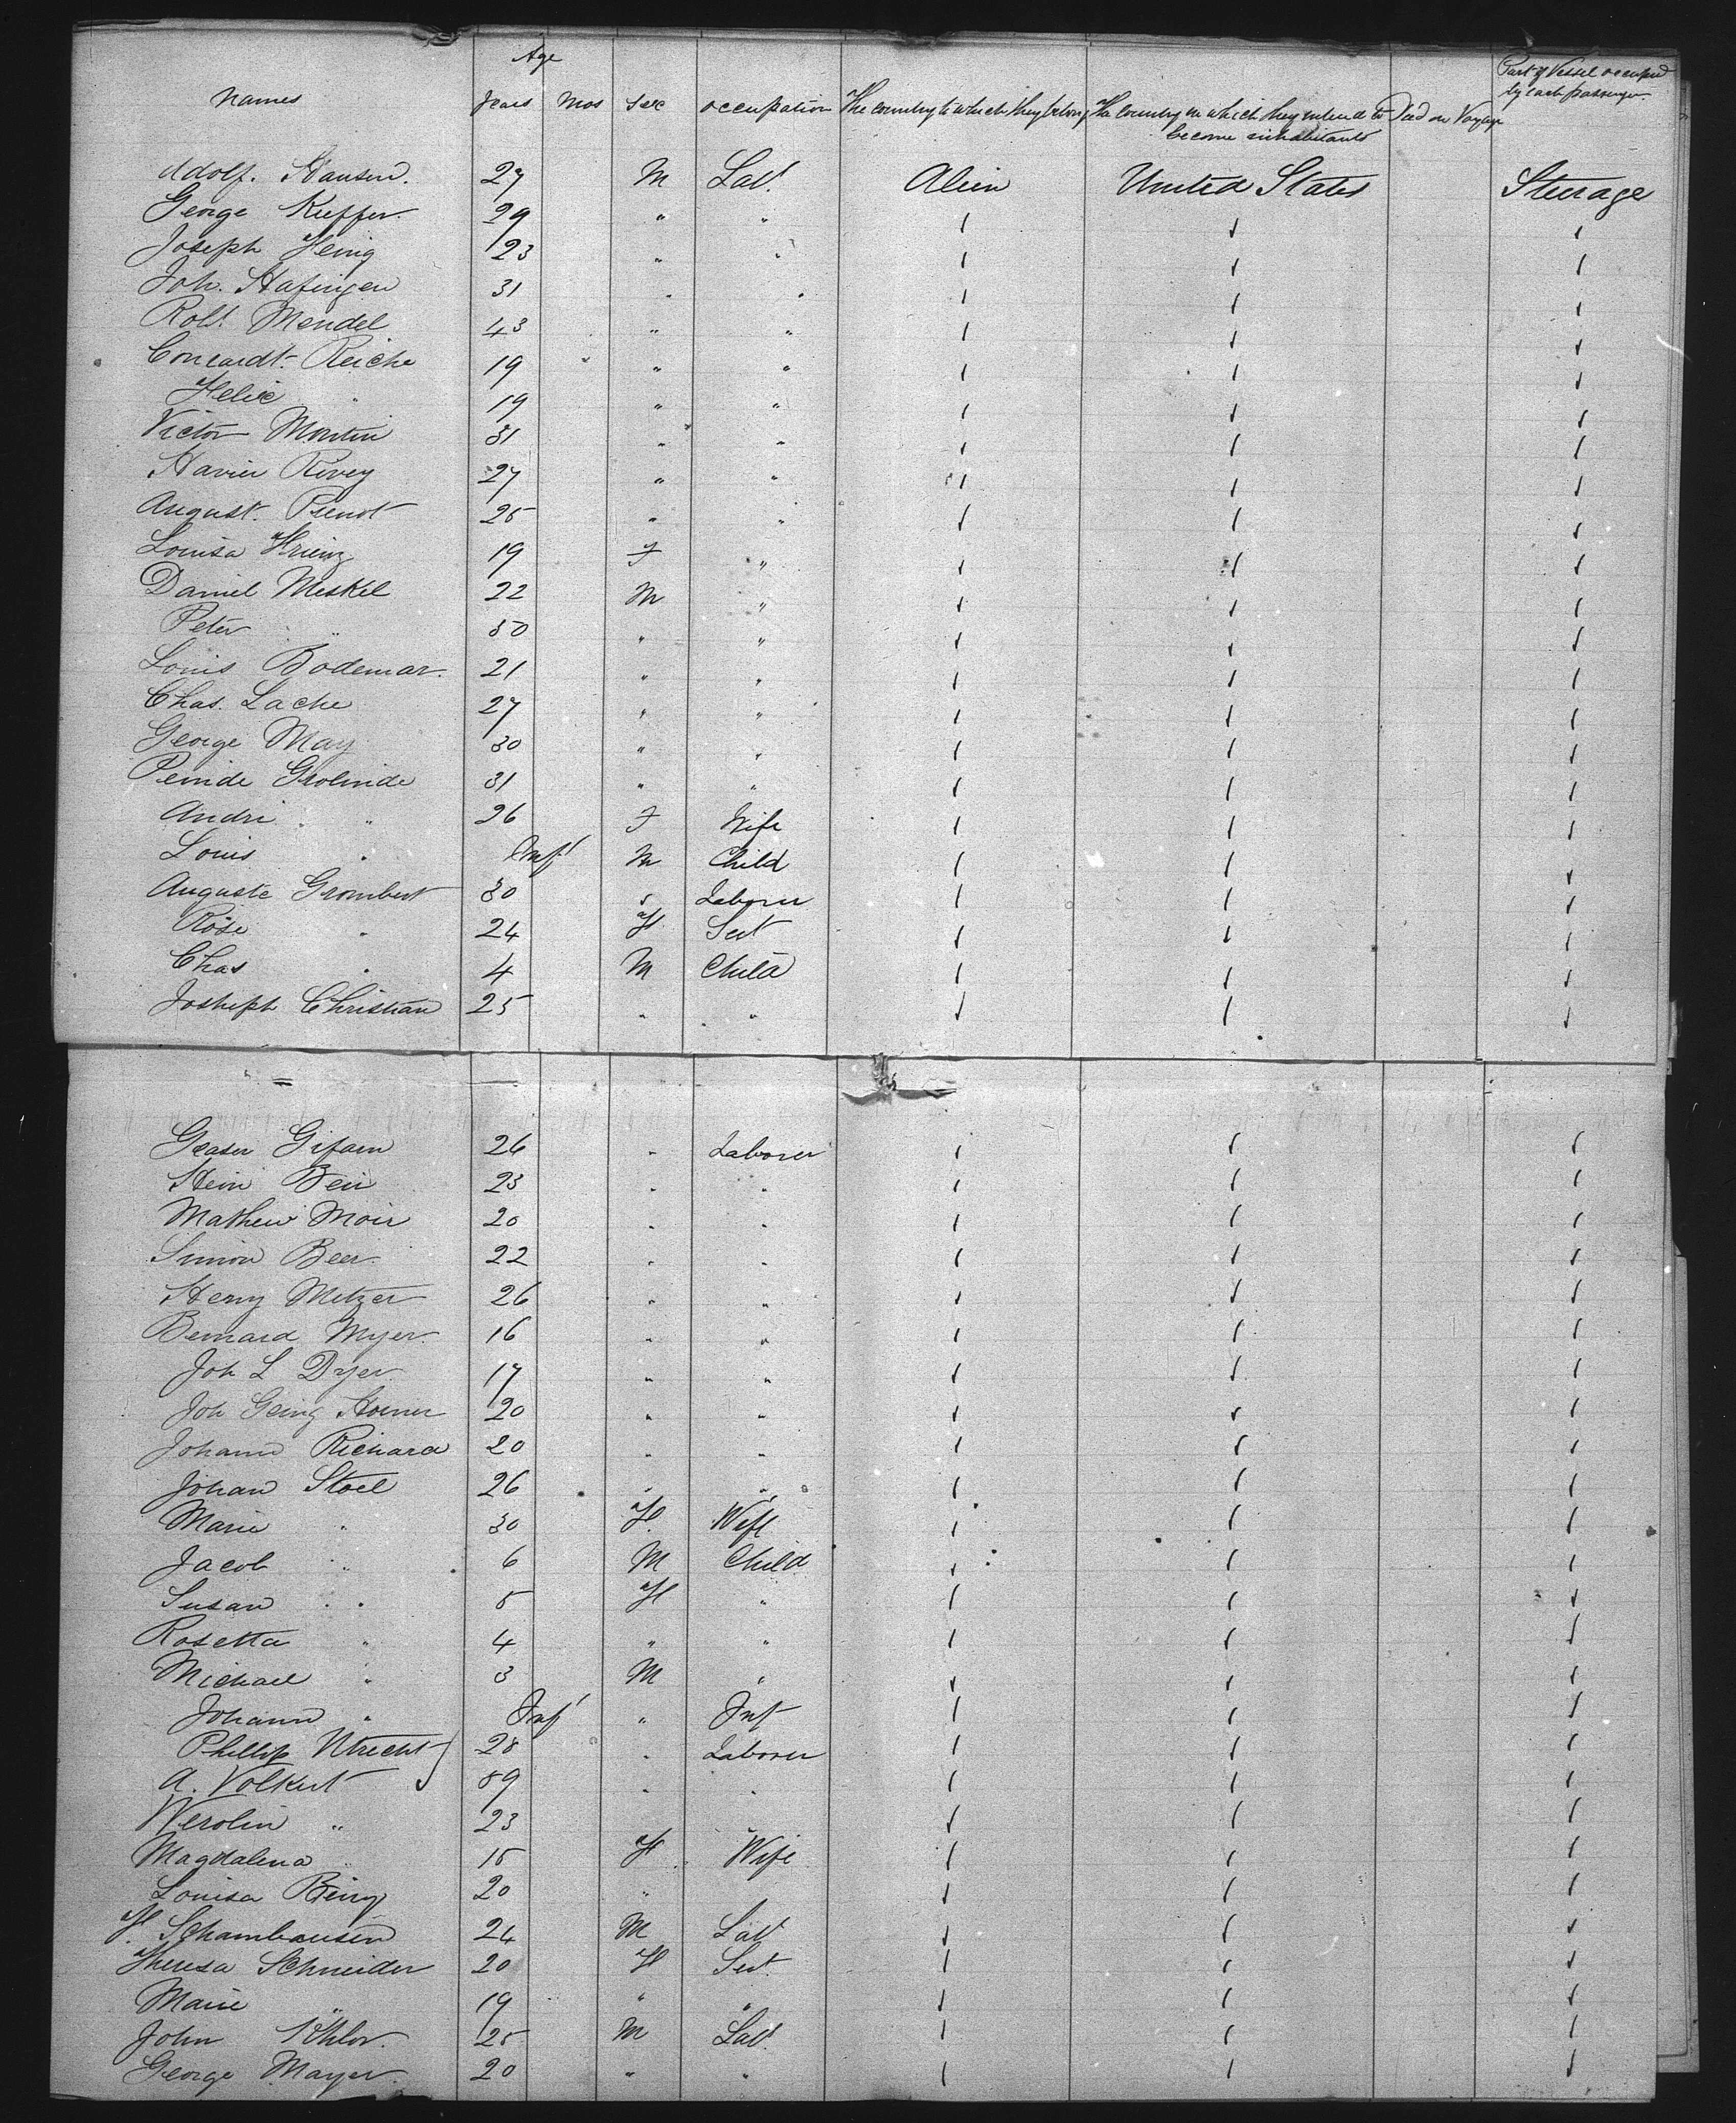 Age
Part of Vessel occupied by each passenger.
Names Years Mos Sex occupation The country to which they belong The country in which they intend to become inhabitants Died on Voyage
Adolf. Hansen. 27 M Lab. Alien United States Steerage
George Kieffer. 29 " "
Joseph Heinig 23 " "
Joh. Hafingen 31 " "
Robt. Mendel 43 " "
Concardt. Reiche 19 " "
Felix " 19 " "
Victor Martin 31 " "
Havier Rivey 27 " "
August. Pienot 25 " "
Louisa 19 F "
Daniel Meskel 22 M "
Peter " 50 " "
Louis Bodemar. 21 " "
Chas. Lache 27 " "
George May 30 " "
Peinide Grolinde 31 " "
Andri " 26 F Wife
Louis " Inf M Child
Auguste Grombert 30 " Laborer
Rose " 24 F Sert
Chas " 4 M Child
Josheph Christian 25 " "
Geaser Gifaen 26 " Laborer
Stein Beir 23 " "
Mathew Moir 20 " "
Simon Beer. 22 " "
Henry Metzer 26 " "
Bernard Myer. 16 " "
Joh L Dyer. 17 " "
Joh Georg Hoener 20 " "
Johann Richard 20 " "
Johan Stoel 26 " "
Marie " 30 F. Wife
Jacob " 6 M Child
Susan " 5 F "
Rosetta " 4 " "
Michael " 3 M "
Johann " Inf " Inf
Phillip Utrecht 28 " Laborer
A. Volkert 59 " "
Werolin " 23
Magdalena " 15 F Wife
Louisa Beiry 20 "
F. Schamhausen 24 M Lab
Theresa Schneider 20 F Sert.
Marie " 19 " "
John Kohler. 25 M Lab.
George Mayer. 20 " "